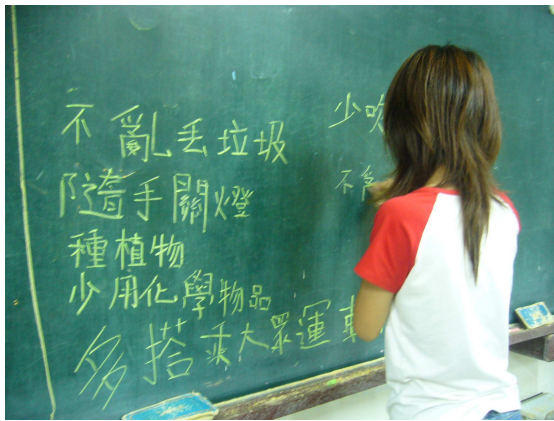 不亂丟垃圾
隨手關燈
種植物
少用化學物品
多搭乘大眾運車
少吹
不